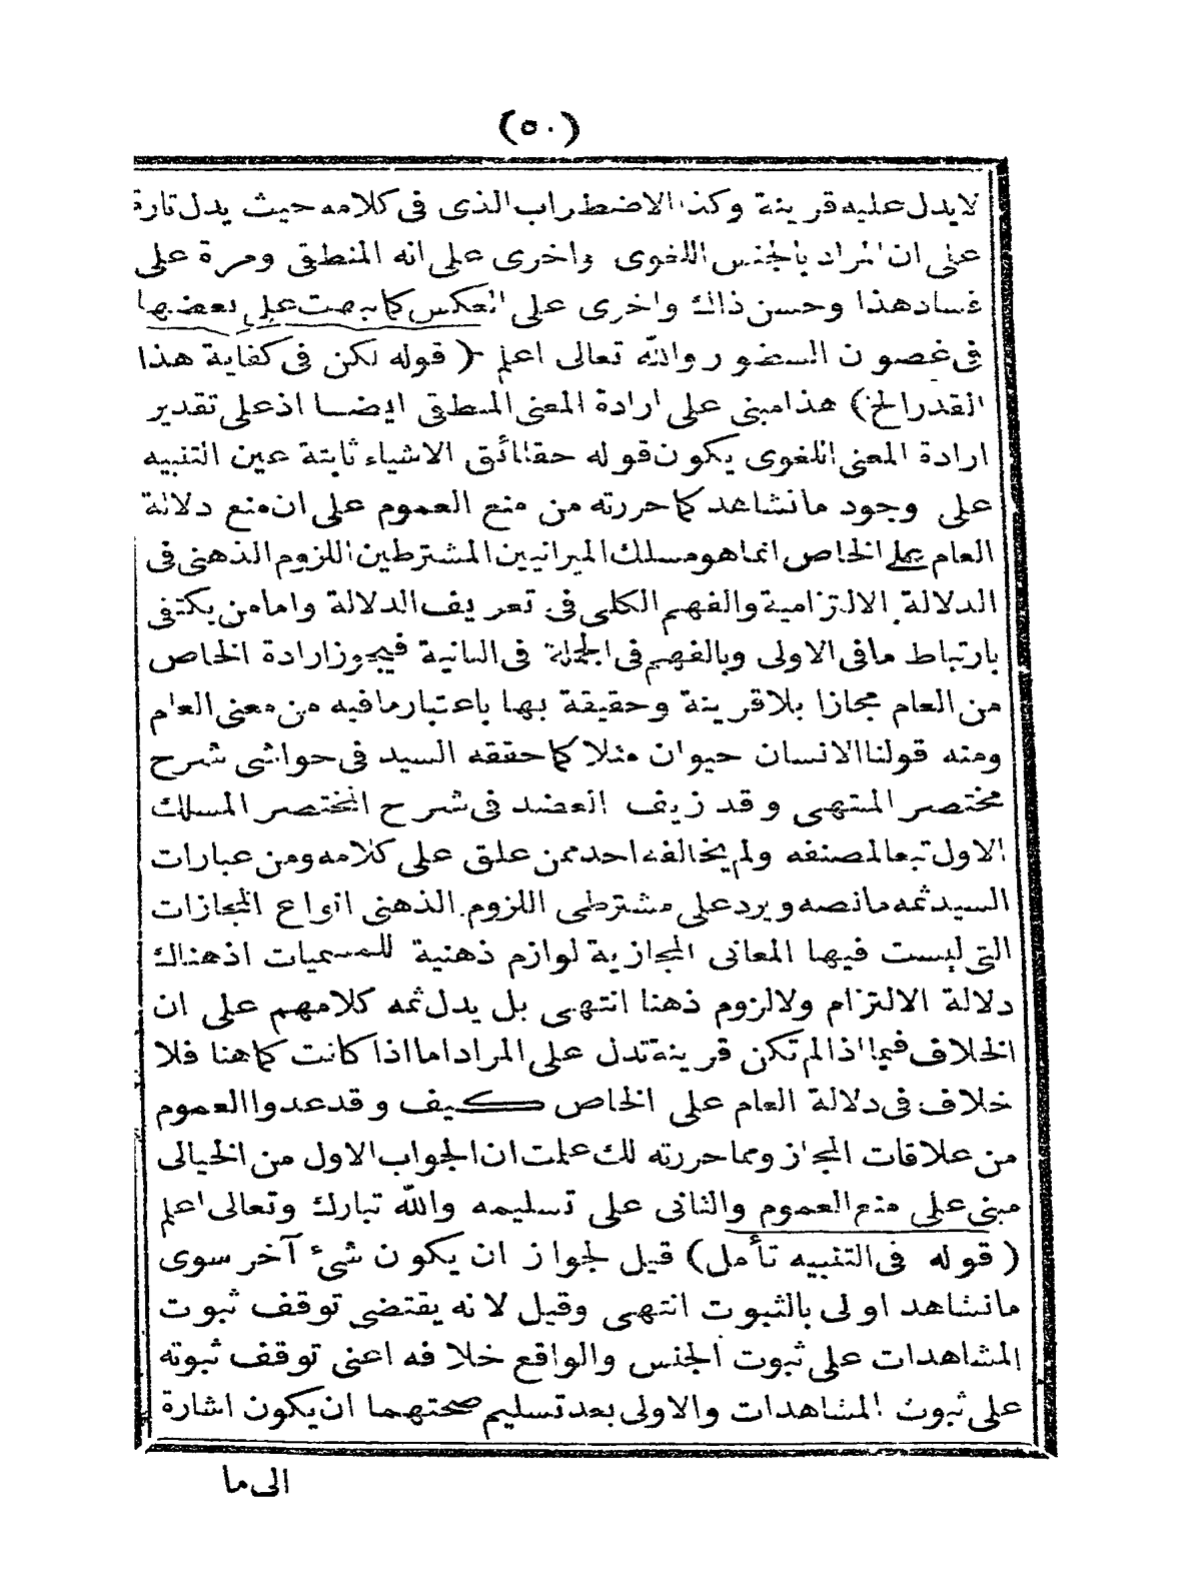 (٥٠)
لايدل عليه قرينة وكذا الاضطراب الذى فى كلامه حيث يدل تارة
على ان المراد بالجنس اللغوى واخرى على انه المنطقى ومرة على
فساد هذا وحسن ذاك واخرى على العكس كما نبهت على بعضها
فى غصون السطور والله تعالى اعلم ( قوله لكن فى كفاية هذا
القدر الخ) هذا مبنى على ارادة المعنى المنطقى ايضا اذ على تقدير
ارادة المعنى اللغوى يكون قوله حقائق الاشياء ثابتة عين التنبيه
على وجود مانشاهد كما حررته من منع العموم على ان منع دلالة
العام على الخاص انما هو مسلك الميزانيين المشترطين اللزوم الذهنى فى
الدلالة الالتزامية والفهم الكلى فى تعريف الدلالة وامامن يكتفى
بارتباط مافى الاولى وبالفهم فى الجملة فى الثانية فيجوز ارادة الخاص
من العام مجازا بلا قرينة وحقيقة بها باعتبار مافيه من معنى العام
ومنه قولنا الانسان حيوان مثلا كما حققه السيد فى حواشى شرح
مختصر المنتهى وقد زيف العضد فى شرح المختصر المسلك
الاول تبعا لمصنفه ولم يخالفه احد ممن علق على كلامه ومن عبارات
السيد ثمه مانصه ويرد على مشترطى اللزوم الذهنى انواع المجازات
التى ليست فيها المعانى المجازية لوازم ذهنية للمسميات اذ هناك
دلالة الالتزام ولالزوم ذهنا انتهى بل يدل ثمه كلامهم على ان
الخلاف فيما اذا لم تكن قرينة تدل على المراد اما اذا كانت كما هنا فلا
خلاف فى دلالة العام على الخاص كيف وقد عدوا العموم
من علاقات المجاز ومما حررته لك علمت ان الجواب الاول من الخيالى
مبنى على منع العموم والثانى على تسليمه والله تبارك وتعالى اعلم
( قوله فى التنبيه تأمل) قيل لجواز ان يكون شئ آخر سوى
مانشاهد اولى بالثبوت انتهى وقيل لانه يقتضى توقف ثبوت
المشاهدات على ثبوت الجنس والواقع خلافه اعنى توقف ثبوته
على ثبوت المشاهدات والاولى بعد تسليم صحتهما ان يكون اشارة
الى ما